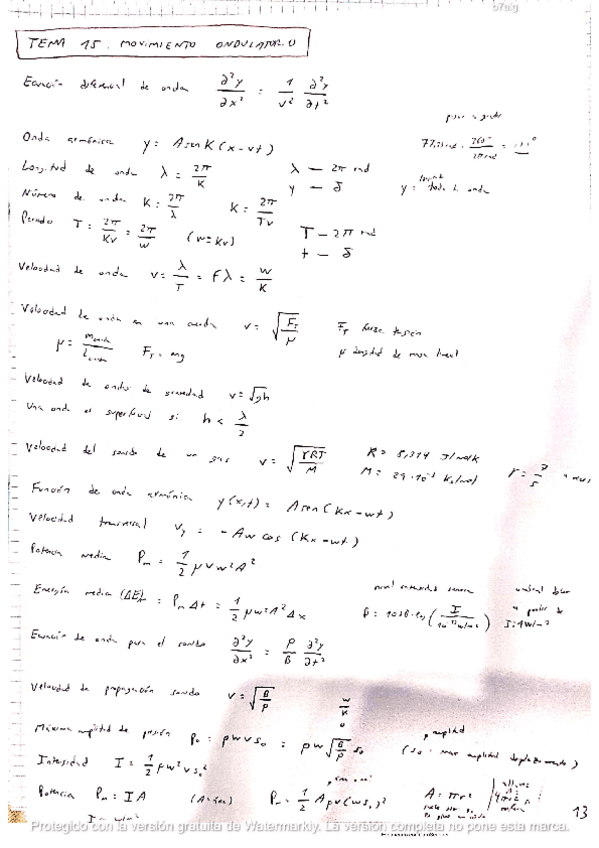 TEMA 15. MOVIMIENTO ONDULATORIO
Ecuación diferencial de onda ∂²y/∂x² = 1/v² ∂²y/∂t²
Onda armónica y = A sen K (x - vt)
Longitud de onda λ = 2π/K λ — 2π rad
y — δ
Número de onda K = 2π/λ K = 2π/Tv
Periodo T = 2π/Kv = 2π/w (w = Kv) T — 2π rad
t — δ
Velocidad de onda v = λ/T = Fλ = w/K
Velocidad de onda en una cuerda v = √(F_T/μ) F_T fuerza tensión
μ = m cuerda/L cuerda F_T = mg μ densidad de masa lineal
Velocidad de ondas de gravedad v = √gh
Una onda es superficial si h < λ/2
Velocidad del sonido de un gas v = √(γRT/M) R = 8,314 J/molK
M = 29·10⁻³ Kg/mol γ = 7/5
Función de onda armónica y(x,t) = A sen (Kx - wt)
Velocidad transversal v_y = -Aw cos (Kx - wt)
Potencia media P_m = 1/2 μ v w² A²
Energía media (ΔE)m = P_m Δt = 1/2 μ w² A² Δx
nivel intensidad sonora
β = 10dB·lg (I/10⁻¹² w/m²)
umbral dolor
a partir de
I = 1 W/m²
Ecuación de onda para el sonido ∂²y/∂x² = ρ/B ∂²y/∂t²
Velocidad de propagación sonido v = √(B/ρ)
w/K
Máxima amplitud de presión P₀ = ρwvs₀ = ρw√(B/ρ) s₀ (s₀ = max amplitud desplazamiento)
amplitud
Intensidad I = 1/2 ρw²vs₀²
Potencia P_m = IA (A = área) P_m = 1/2 Aρv(ws₀)² A = πr²
13
Protegido con la versión gratuita de Watermarkly. La versión completa no pone esta marca.